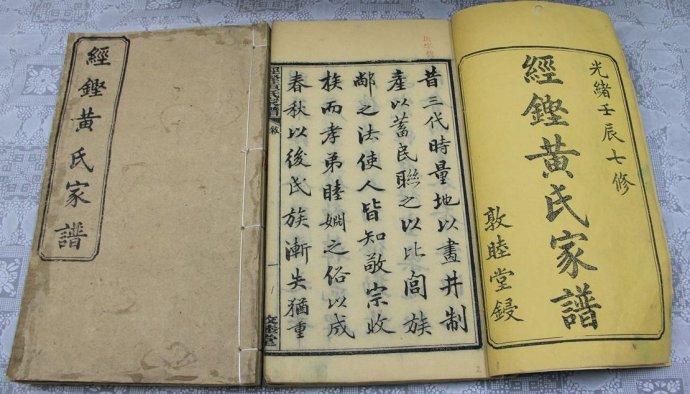 經鏗黃氏家譜
光緒壬辰七修
經鏗黃氏家譜
敦睦堂鋟
昔三代時量地以畫井制
產以蓄民聯之以比閭族
鄰之法使人皆知敬宗收
族而孝弟睦婣之俗以成
春秋以後氏族漸失猶重